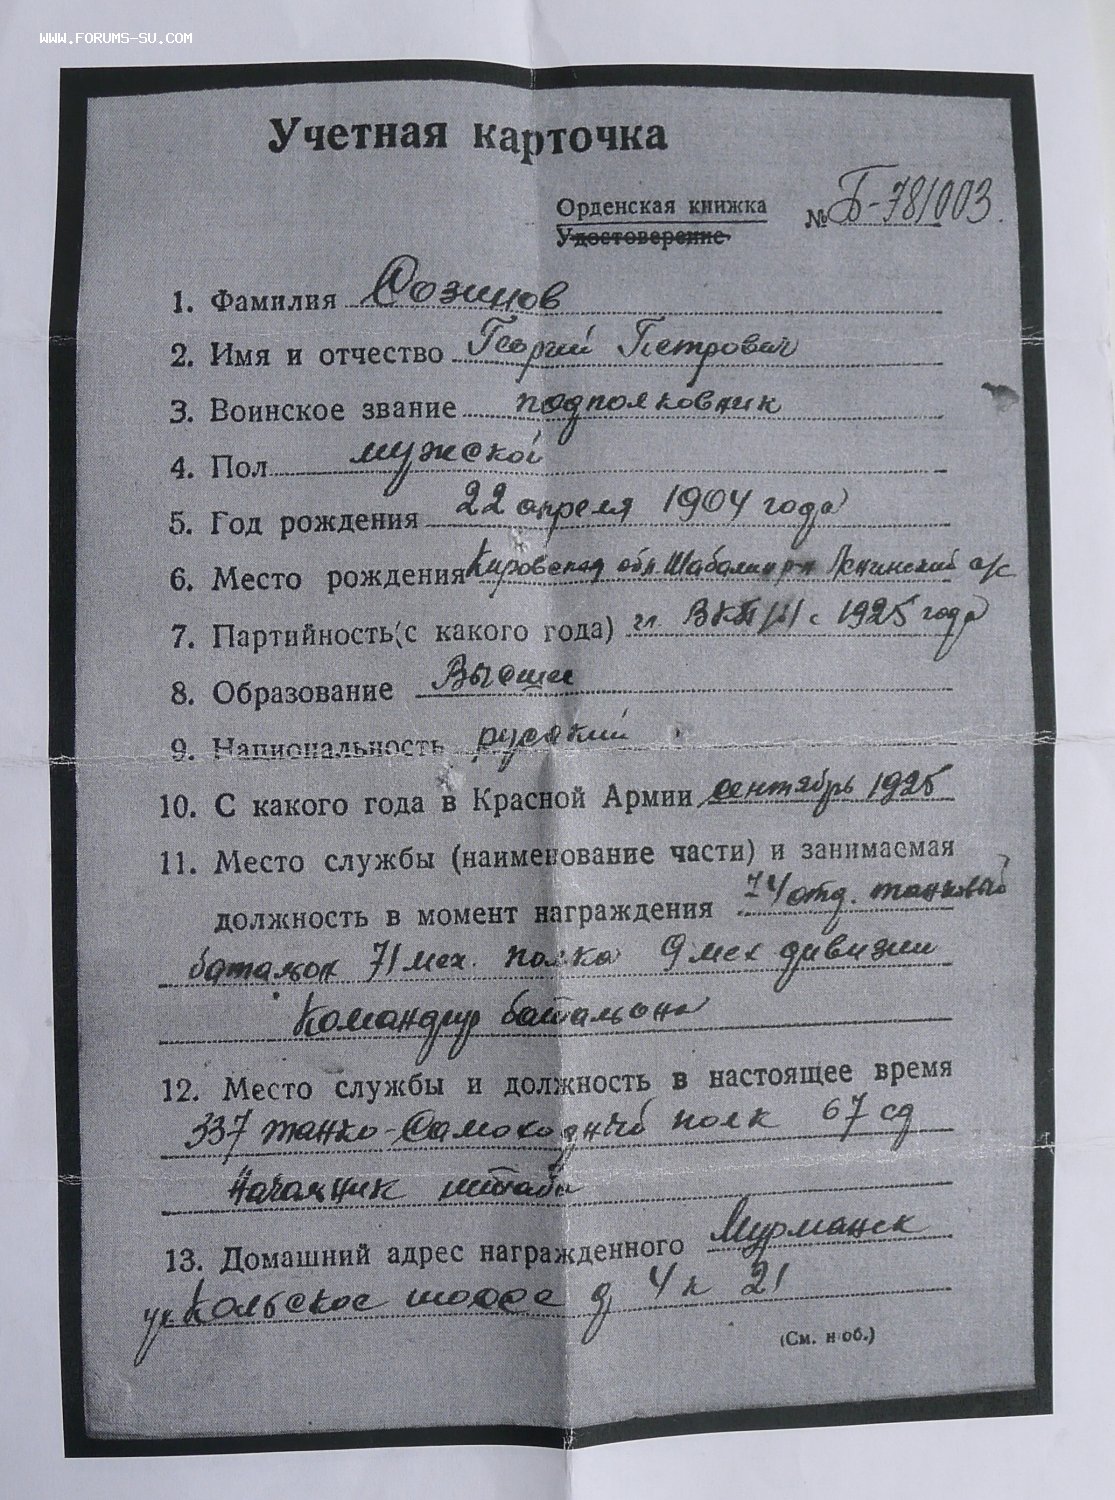 WWW.FORUMS-SU.COM
Учетная карточка
Орденская книжка № Б-781003.
Удостоверение
1. Фамилия Созинов
2. Имя и отчество Георгий Петрович
3. Воинское звание подполковник
4. Пол мужской
5. Год рождения 22 апреля 1904 года
6. Место рождения Кировская обл. Шабалинск Ленинский с/с
7. Партийность (с какого года) чл. ВКП/б/ с 1925 года
8. Образование Высшее
9. Национальность русский
10. С какого года в Красной Армии сентябрь 1925
11. Место службы (наименование части) и занимаемая
должность в момент награждения 74 отд. танковый
батальон 71 мех. полка 9 мех дивизии
Командир батальона
12. Место службы и должность в настоящее время
337 танко-самоходный полк 67 сд
Начальник штаба
13. Домашний адрес награжденного Мурманск
ул Кольское шоссе д 4 к 21
(См. н об.)